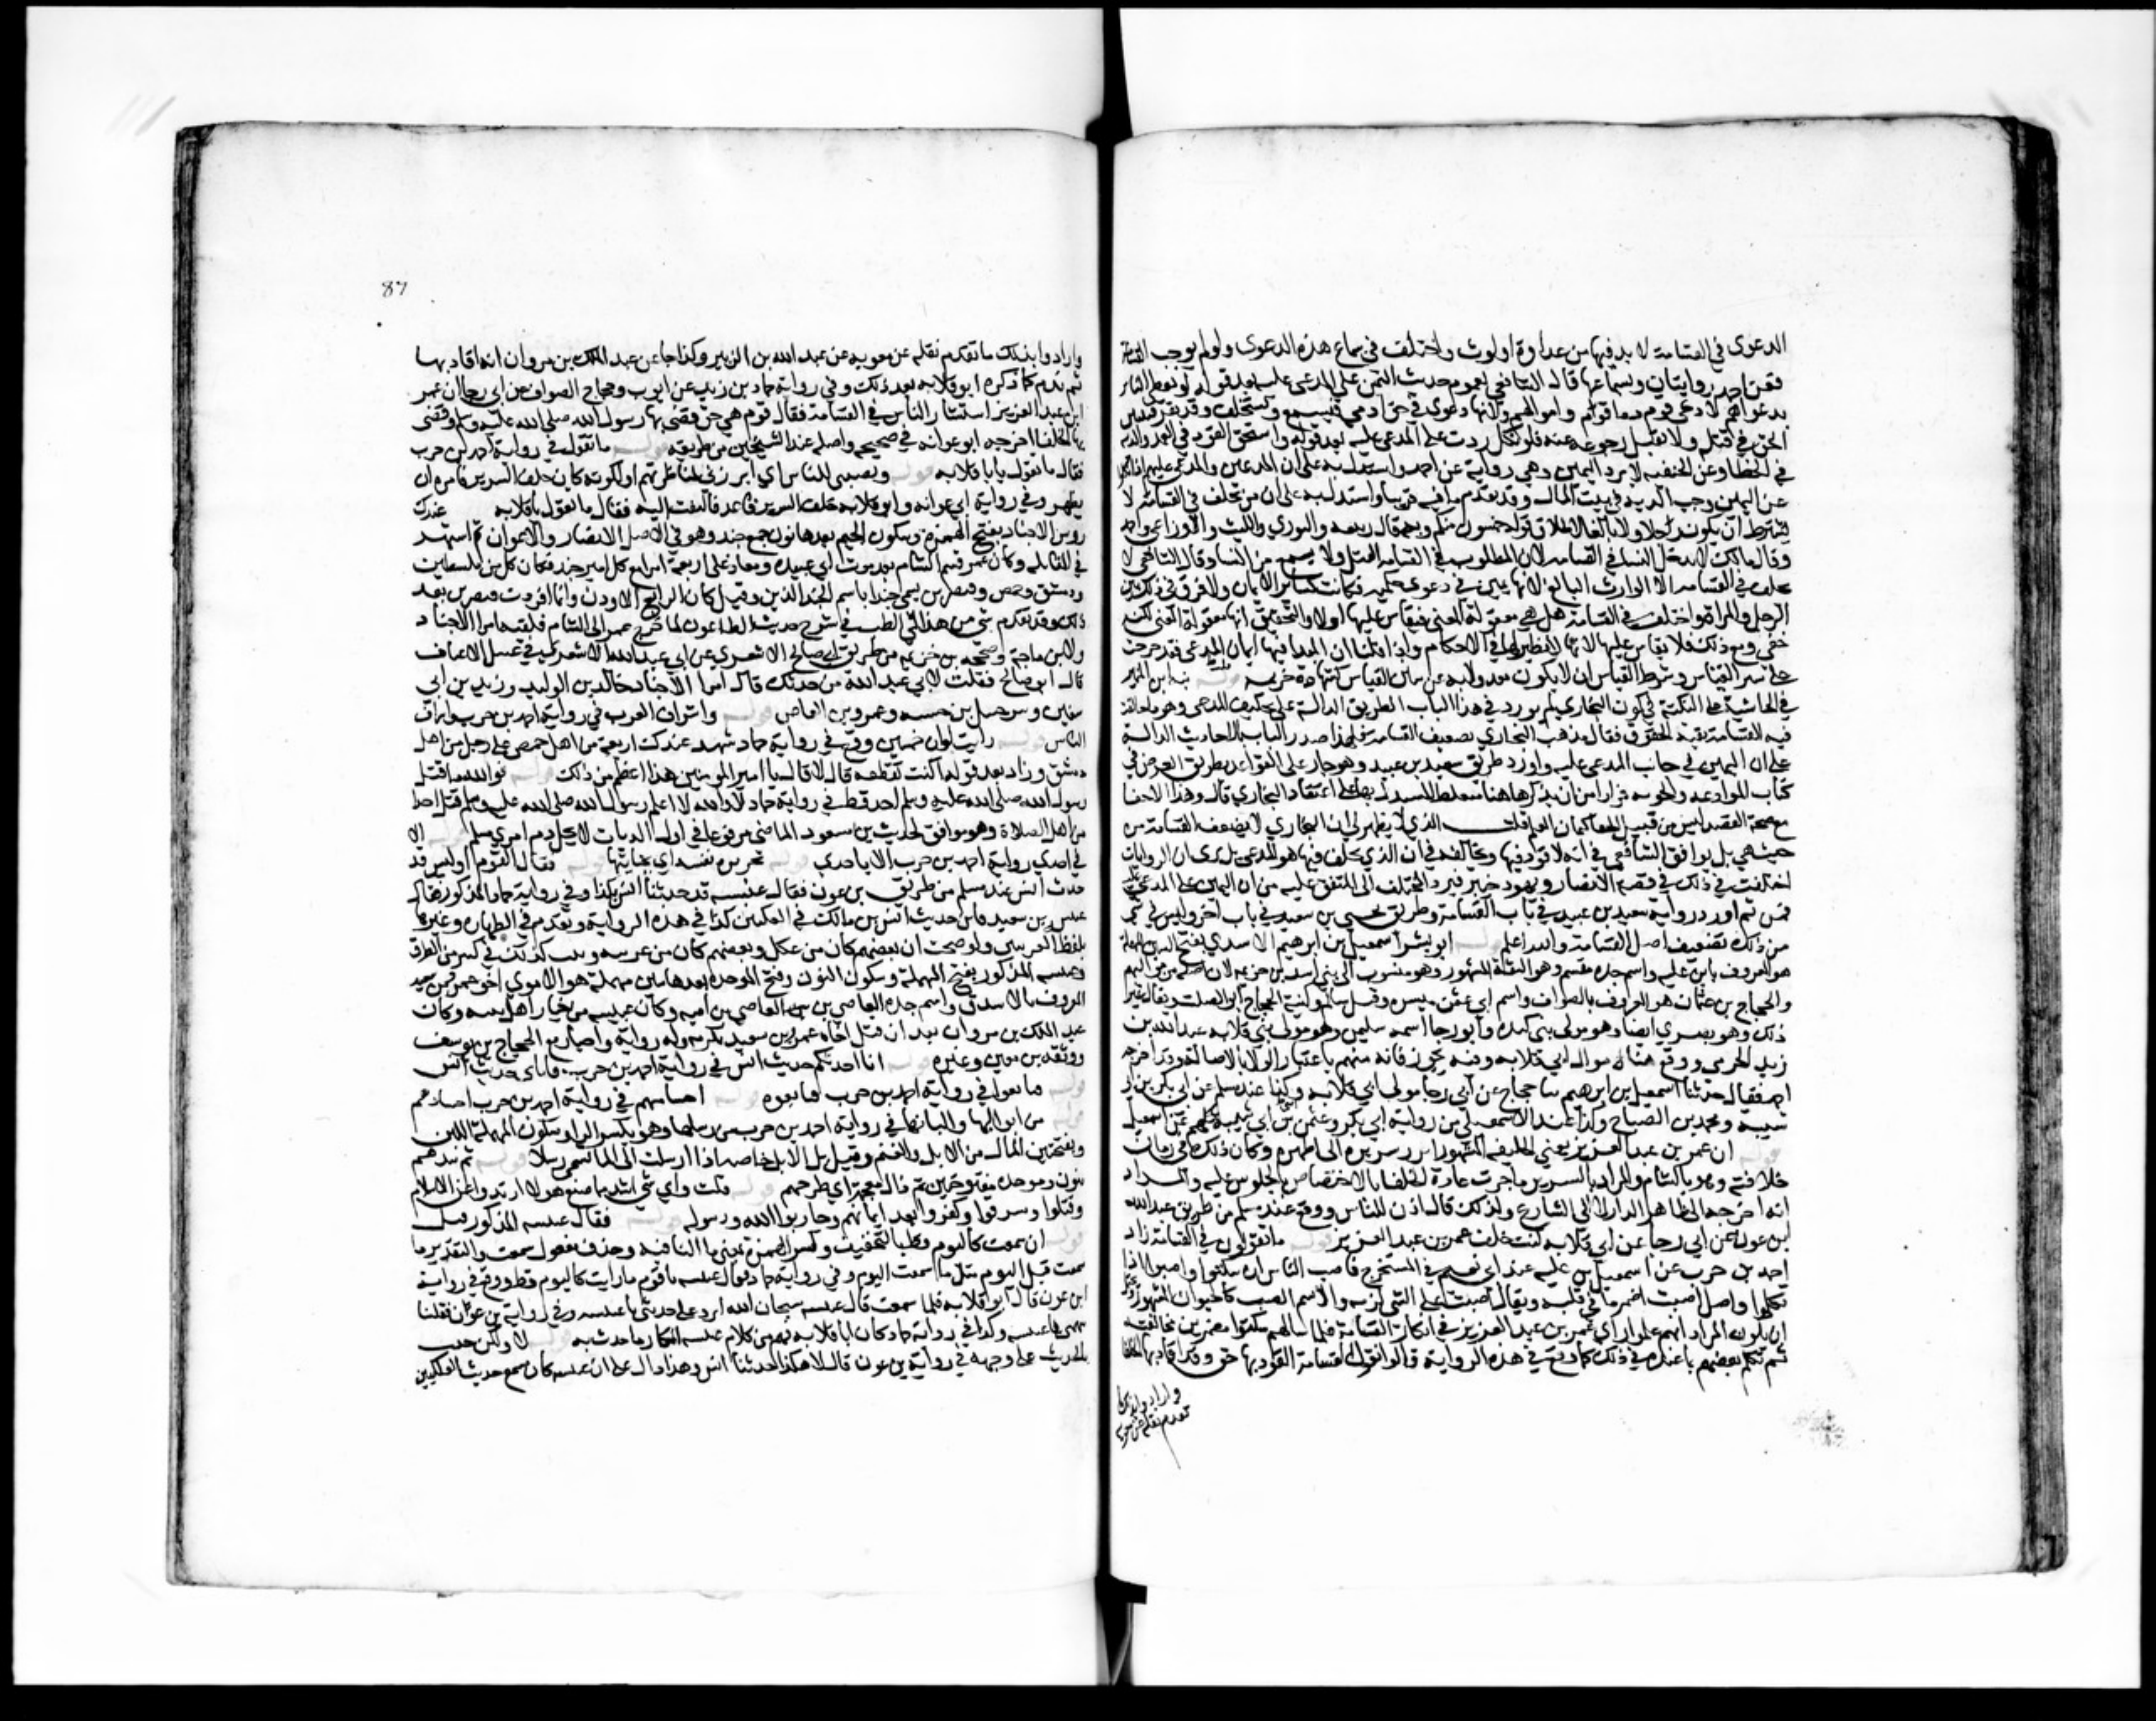 الدعوى في القسامة لا بد فيها من عداوة او لوث واختلف في سماع هذه الدعوى ولو لم يوجب القسامة
فعن احمد روايتان وبسماعها قال الشافعي لعموم حديث اليمين على المدعى عليه بعد قوله لو يعطى الناس
بدعواهم لادعى قوم دما قوم واموالهم ولانها دعوى في حق ادمي فتسمع ويستحلف وقد يقر فيثبت
الحق في قتله ولا يقبل رجوعه عنه فلو نكل ردت على المدعي عليه بعد قوله واستحق القود في العمد والدية
في الخطا وعن الحنفية لا يرد اليمين وهي رواية عن احمد واستدل به على ان المدعين والمدعى عليهم اذا نكلوا
عن اليمين وجب الدية في بيت المال وقد تقدم ما فيه قريبا واستدل به على ان من يحلف في القسامة لا
يشترط ان يكون رجلا ولا بالغا لاطلاق قوله خمسون منكم وبه قال ربيعه والثوري والليث والاوزاعي واحمد
وقال مالك لا يدخل النسا في القسامه لان المطلوب في القسامه القتل ولا يسمع من النسا وقال الشافعي لا
يحلف في القسامه الا الوارث البالغ لانها يمين في دعوى حكميه فكانت كسائر الايمان ولا فرق في ذلك بين
الرجل والمراة واختلف في القسامة هل هي معقولة المعنى فيقاس عليها او لا والتحقيق انها معقولة المعنى لكنه
خفي ومع ذلك فلا يقاس عليها لانها لا نظير لها في الاحكام واذا قلنا ان المبدا فيها ايمان المدعي فقد خرجت
عن سنن القياس وشرط القياس ان لا يكون معدولا به عن سنن القياس كشهادة خزيمه نبه ابن المنير
في الحاشية على النكتة في كون البخاري لم يورد في هذا الباب الطريق الدالة على تحليف المدعي وهو ما خالفت
فيه القسامة بقية الحقوق فقال مذهب البخاري تضعيف القسامة فلهذا صدر الباب بالاحاديث الدالة
على ان اليمين في جانب المدعى عليه واورد طريق سعيد بن عبيد وهو جار على القواعد بطريق العرض في
كتاب الموادعه والجزيه فرارا من ان يذكرها هنا فيغلط المستدل بها على اعتقاد البخاري قال وهذا الاخفا
مع صحة القصد ليس من قبيل كتمان العلم قلت الذي يظهر لي ان البخاري لا يضعف القسامة من
حيث هي بل يوافق الشافعي في انه لا قود فيها ويخالفه في ان الذي يحلف فيها هو المدعي بل يرى ان الروايات
اختلفت في ذلك في قصة الانصار ويهود خيبر فيرد المختلف الى المتفق عليه من ان اليمين على المدعى عليه
فمن ثم اورد رواية سعيد بن عبيد في باب القسامة وطريق يحيى بن سعيد في باب آخر وليس في شي
من ذلك تضعيف اصل القسامة والله اعلم ابو بشر اسمعيل بن ابرهيم الاسدي بفتح السين المهملة
هو المعروف بابن علية واسم جده مقسم وهو الثقة المشهور وهو منسوب الى بني اسد بن خزيمه لان اصله من مواليهم
والحجاج بن عثمان هو المعروف بالصواف واسم ابي عثمن ميسرة وقيل سالم وكنية الحجاج ابو الصلت ويقال غير
ذلك وهو بصري ايضا وهو مولى بني كنده وابو رجا اسمه سليمن وهو مولى ابي قلابه عبد الله بن
زيد الجرمي ووقع هنا من آل ابي قلابه وفيه تجوز فانه منهم باعتبار الولا لا بالاصالة وقد اخرجه
احمد فقال حدثنا اسمعيل بن ابرهيم ثنا حجاج عن ابي رجا مولى ابي قلابه وكذا عند مسلم عن ابي بكر بن ابي
شيبة ومحمد بن الصباح وكذا عند الاسمعيلي من رواية ابي بكر وعثمن بني ابي شيبة كلهم عن اسمعيل
قوله ان عمر بن عبد العزيز يعني الخليفه المشهور ابرز سريره اي اظهره وكان ذلك في زمان
خلافته وهو بالشام والمراد بالسرير ما جرت عادة الخلفا بالاختصاص بالجلوس عليه والمراد
انه اخرجه الى ظاهر الدار لا الى الشارع ولذلك قال اذن للناس ووقع عند مسلم من طريق عبد الله
ابن عون عن ابي رجا عن ابي قلابه كنت خلف عمر بن عبد العزيز قوله ما تقولون في القسامة زاد
احمد بن حرب عن اسمعيل بن علية عند ابي نعيم في المستخرج فاضب الناس اي سكتوا واضبوا اذا
تكلموا واصل اضبت اضمر ما في قلبه ويقال اضبت على الشي لزمه والاسم الضب كالحيوان المشهور ويحتمل
ان يكون المراد انهم علموا راي عمر بن عبد العزيز في انكار القسامة فلما سالهم سكتوا مضمرين مخالفته
ثم تكلم بعضهم بما عنده في ذلك كما وقع في هذه الرواية قالوا نقول القسامة القود بها حق وقد اقادت بها الخلفا
وارادوا بذلك ما
تقدم نقله عن معويه
87
وارادوا بذلك ما تقدم نقله عن معويه عن عبد الله بن الزبير وكذا جا عن عبد الملك بن مروان انه اقاد بها
ثم ندم كما ذكره ابو قلابه بعد ذلك وفي رواية حماد بن زيد عن ايوب وحجاج الصواف عن ابي رجا ان عمر
ابن عبد العزيز استشار الناس في القسامة فقال قوم هي حق قضى بها رسول الله صلى الله عليه وسلم وقضى
بها الخلفا اخرجه ابو عوانه في صحيحه واصله عند الشيخين من طريقه قوله ما تقول في رواية احمد بن حرب
فقال ما تقول يابا قلابه قوله ونصبني للناس اي ابرزني لمناظرتهم او لكونه كان خلف السرير فامره ان
يظهر وفي رواية ابي عوانه وابو قلابه خلف السرير قاعد فالتفت اليه فقال ما تقول يابا قلابه عندك
روس الاجناد بفتح الهمزة وسكون الجيم بعدها نون جمع جند وهو في الاصل الانصار والاعوان ثم اشتهر
في المقاتله وكان عمر قسم الشام بعد موت ابي عبيده ومعاذ على اربعة امرا مع كل امير جند فكان كل من فلسطين
ودمشق وحمص وقنسرين يسمى جندا باسم الجند الذين وقيل كان الرابع الاردن وانما افردت قنسرين بعد
ذلك وقد تقدم شي من هذا في الطب في شرح حديث الطاعون لما خرج عمر الى الشام فلقيه امرا الاجناد
ولابن ماجة وصححه بن خزيمه من طريق ابي صالح الاشعري عن ابي عبد الله الاشعري في غسل الاعقاب
قال ابو صالح فقلت لابي عبد الله من حدثك قال امرا الاجناد خالد بن الوليد ويزيد بن ابي
سفين وشرحبيل بن حسنه وعمرو بن العاص قوله واشراف العرب في رواية احمد بن حرب واشراف
الناس قوله رايت لو ان خمسين وقع في رواية حماد شهد عندك اربعة من اهل حمص على رجل من اهل
دمشق وزاد بعد قوله اكنت تقطعه قال لا قال يا امير المومنين هذا اعظم من ذلك قوله فوالله ما قتل
رسول الله صلى الله عليه وسلم احد قط في رواية حماد لا والله لا اعلم رسول الله صلى الله عليه وسلم قتل احدا
من اهل الصلاة وهو موافق لحديث بن مسعود الماضي مرفوعا في اول الديات لا يحل دم امري مسلم قوله الا
في احدى رواية احمد بن حرب الا باحدى قوله بجريرة نفسه اي بجنايتها قوله فقال القوم اوليس قد
حدث انس عند مسلم من طريق بن عون فقال عنبسه قد حدثنا انس بكذا وفي رواية حماد المذكورة فقال
عنبسة بن سعيد فاين حديث انس بن مالك في العكليين كذا في هذه الرواية وتقدم في الطهارة وغيرها
بلفظ العرنيين واوضحت ان بعضهم كان من عكل وبعضهم كان من عرينه وثبت كذلك في كثير من الطرق
وعنبسه المذكور بفتح المهملة وسكون النون وفتح الموحده بعدها سين مهملة هو الاموي اخو عمرو بن سعيد
المعروف بالاشدق واسم جده العاصي بن سعيد بن العاصي بن اميه وكان عنبسه من خيار اهل بيته وكان
عبد الملك بن مروان بعد ان قتل اخاه عمرو بن سعيد يكرمه وله رواية واخبار مع الحجاج بن يوسف
ووثقه بن معين وغيره قوله انا احدثكم حديث انس في رواية احمد بن حرب فاياي حديث انس
قوله فبايعوا في رواية احمد بن حرب فبايعوه قوله اجسامهم في رواية احمد بن حرب اجسادهم
قوله من ابوالها والبانها في رواية احمد بن حرب من رسلها وهو بكسر الرا وسكون المهملة اللبن
وبفتحتين المال من الابل والغنم وقيل بل الابل خاصه اذا ارسلت الى الما تسمى رسلا قوله ثم نبذهم
بنون وموحده مفتوحتين ثم ذال معجمة اي طرحهم قوله قلت واي شي اشد مما صنع هولا ارتدوا عن الاسلام
وقتلوا وسرقوا وكفروا بعد ايمانهم وحاربوا الله ورسوله قوله فقال عنبسه المذكور قبل
قوله ان سمعت كاليوم قط بالتخفيف وكسر الهمزة بمعنى ما النافيه وحذف مفعول سمعت والتقدير ما
سمعت قبل اليوم مثل ما سمعت اليوم وفي رواية حماد فقال عنبسه يا قوم ما رايت كاليوم قط ووقع في رواية
ابن عون قال ابو قلابه فلما سمعت قال عنبسه سبحان الله اترد علي حديثي يا عنبسه وفي رواية بن عون فقلنا
تتهمني يا عنبسه وكذا في رواية حماد كان ابا قلابه فهم من كلام عنبسه انكار ما حدث به قوله لا ولكن جئت
بالحديث على وجهه في رواية بن عون قال لا هكذا حدثنا انس وهذا دال على ان عنبسه كان سمع حديث العكليين